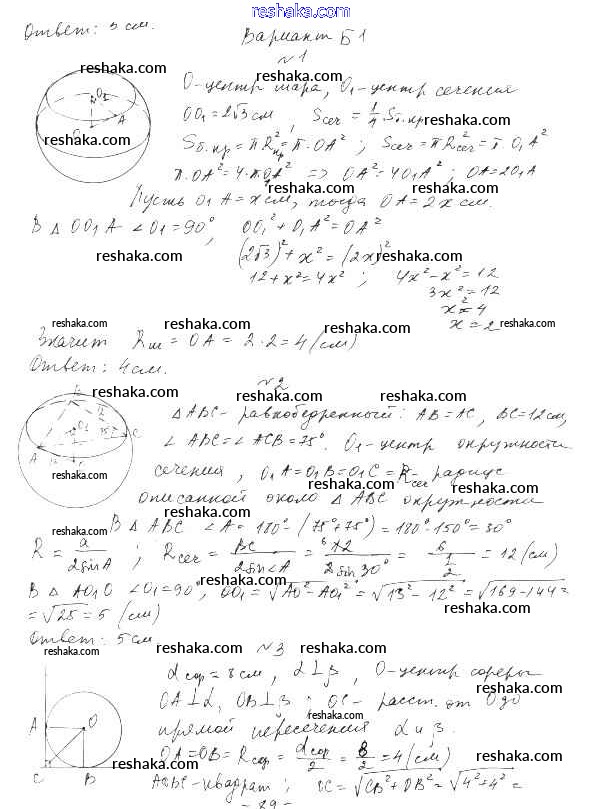 reshaka.com
Ответ: 5 см.
Вариант Б1
№1
O-центр шара, O₁-центр сечения
OO₁ = 2√3 см, Sсеч = 1/4 Sб.кр
Sб.кр = πR²кр = π·OA²; Sсеч = πR²сеч = π·O₁A²
π·OA² = 4·πO₁A² => OA² = 4O₁A²; OA = 2O₁A
Пусть O₁A = x см, тогда OA = 2x см.
В △ OO₁A ∠O₁ = 90°, OO₁² + O₁A² = OA²
(2√3)² + x² = (2x)²
12 + x² = 4x²; 4x² - x² = 12
3x² = 12
x² = 4
x = 2
Значит Rш = OA = 2·2 = 4 (см)
Ответ: 4 см.
№2
△ABC - равнобедренный: AB = AC, BC = 12 см,
∠ABC = ∠ACB = 75°. O₁-центр окружности
сечения, O₁A = O₁B = O₁C = Rсеч - радиус
описанной около △ABC окружности
В △ABC ∠A = 180° - (75° + 75°) = 180° - 150° = 30°
R = a/2sinA; Rсеч = BC/2sin∠A = 12/2sin30° = 6/(1/2) = 12 (см)
В △ AO₁O ∠O₁ = 90°, OO₁ = √AO² - AO₁² = √13² - 12² = √169 - 144 =
= √25 = 5 (см)
Ответ: 5 см.
№3
dсф = 8 см, α⊥β, O-центр сферы
OA⊥α, OB⊥β; OC - расст. от O до
прямой пересечения α и β.
OA = OB = Rсф = dсф/2 = 8/2 = 4 (см)
AOBC - квадрат; OC = √CB² + OB² = √4² + 4² =
- 29 -